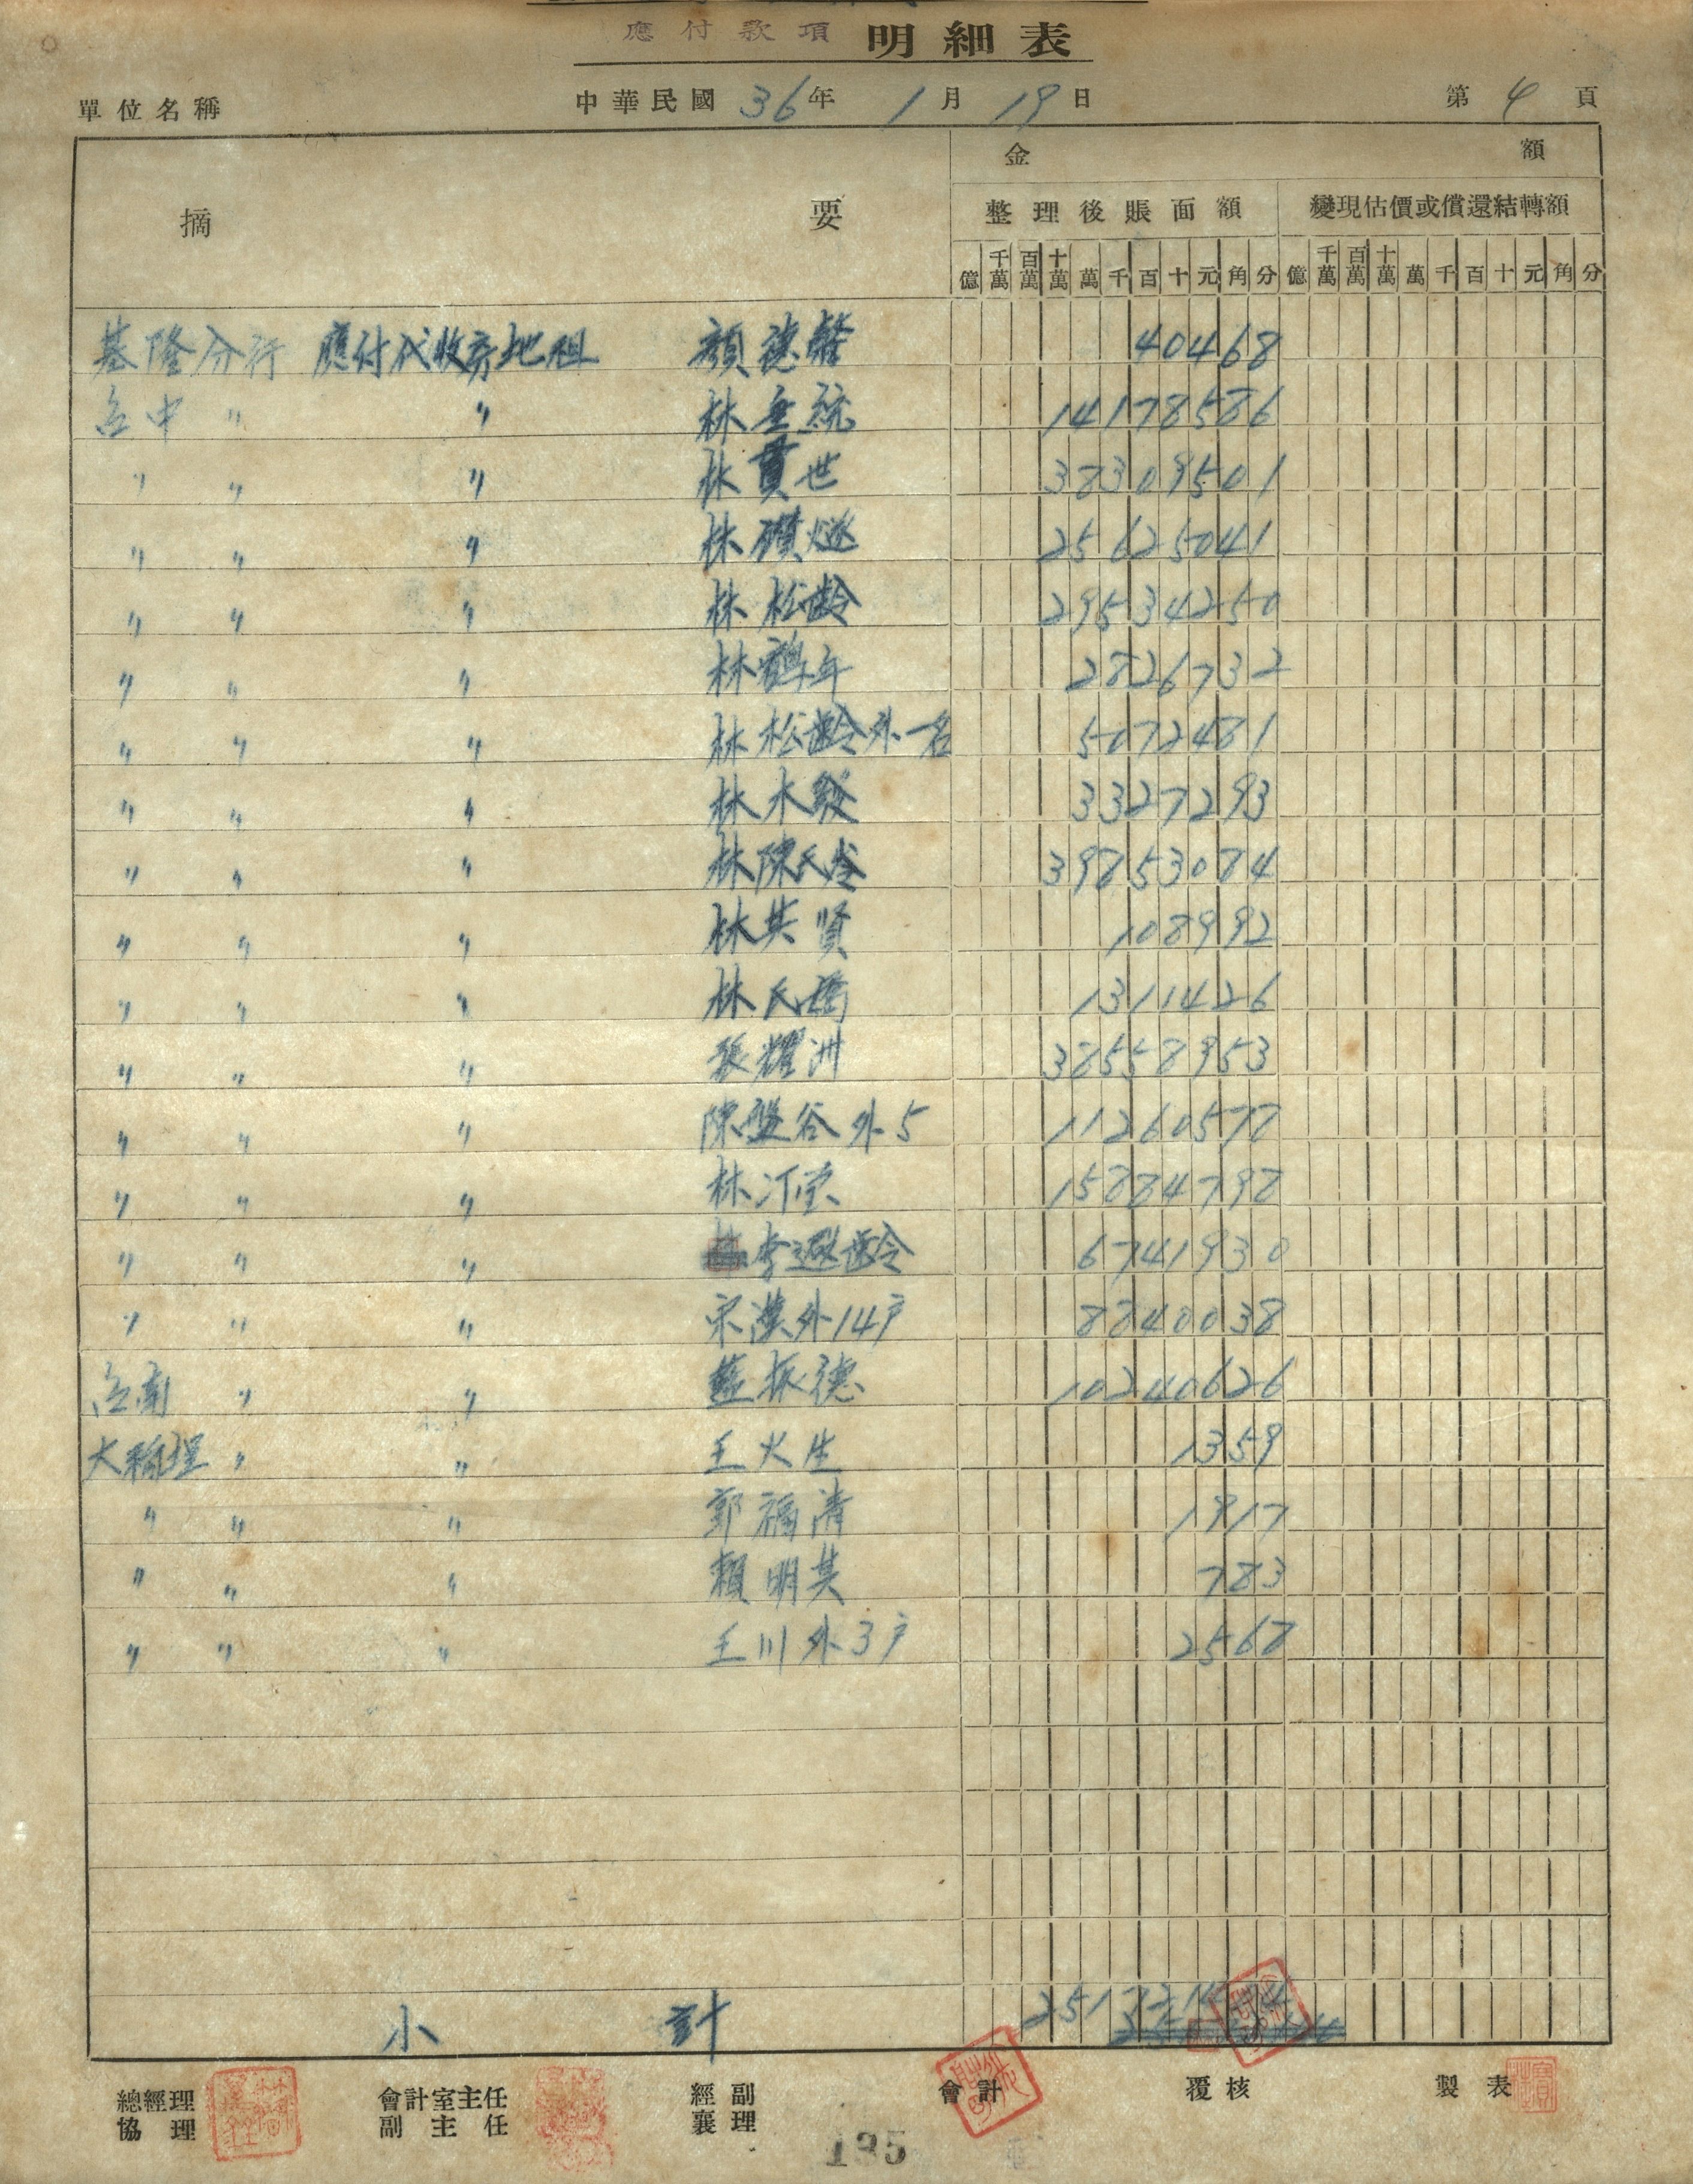 應付款項 明細表
單位名稱 中華民國 36年 1月 19日 第 4 頁
摘 要 金 額
整理後賬面額 變現估價或償還結轉額
億 千萬 百萬 十萬 萬 千 百 十 元 角 分 億 千萬 百萬 十萬 萬 千 百 十 元 角 分
基隆分行 應付代收弃地租 顏德馨 40468
台中 〃 〃 林垂統 14178586
〃 〃 〃 林貫世 38309501
〃 〃 〃 林瓚燧 25625041
〃 〃 〃 林松齡 29534250
〃 〃 〃 林鶴年 2826732
〃 〃 〃 林松齡外一名 5072481
〃 〃 〃 林木發 3327293
〃 〃 〃 林陳氏岺 39853084
〃 〃 〃 林共賢 108992
〃 〃 〃 林氏橋 1311426
〃 〃 〃 張耀洲 38558953
〃 〃 〃 陳盤谷外5 11260578
〃 〃 〃 林汀棠 15884798
〃 〃 〃 李遐齡 6741930
〃 〃 〃 宋漢外14戶 8840038
台南 〃 〃 蓝振德 10240626
大稻埕 〃 〃 王火生 1359
〃 〃 〃 郭福清 1917
〃 〃 〃 賴明其 783
〃 〃 〃 王川外3戶 2568
小 計
總經理 會計室主任 經副 會計 覆核 製表
協理 副主任 襄理
135